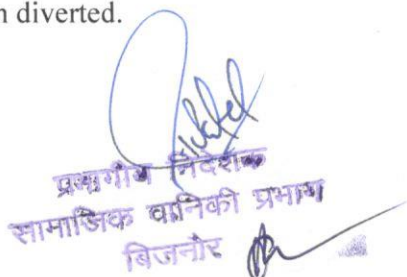 n diverted.
प्रभागीय निदेशक
सामाजिक वानिकी प्रभाग
बिजनौर